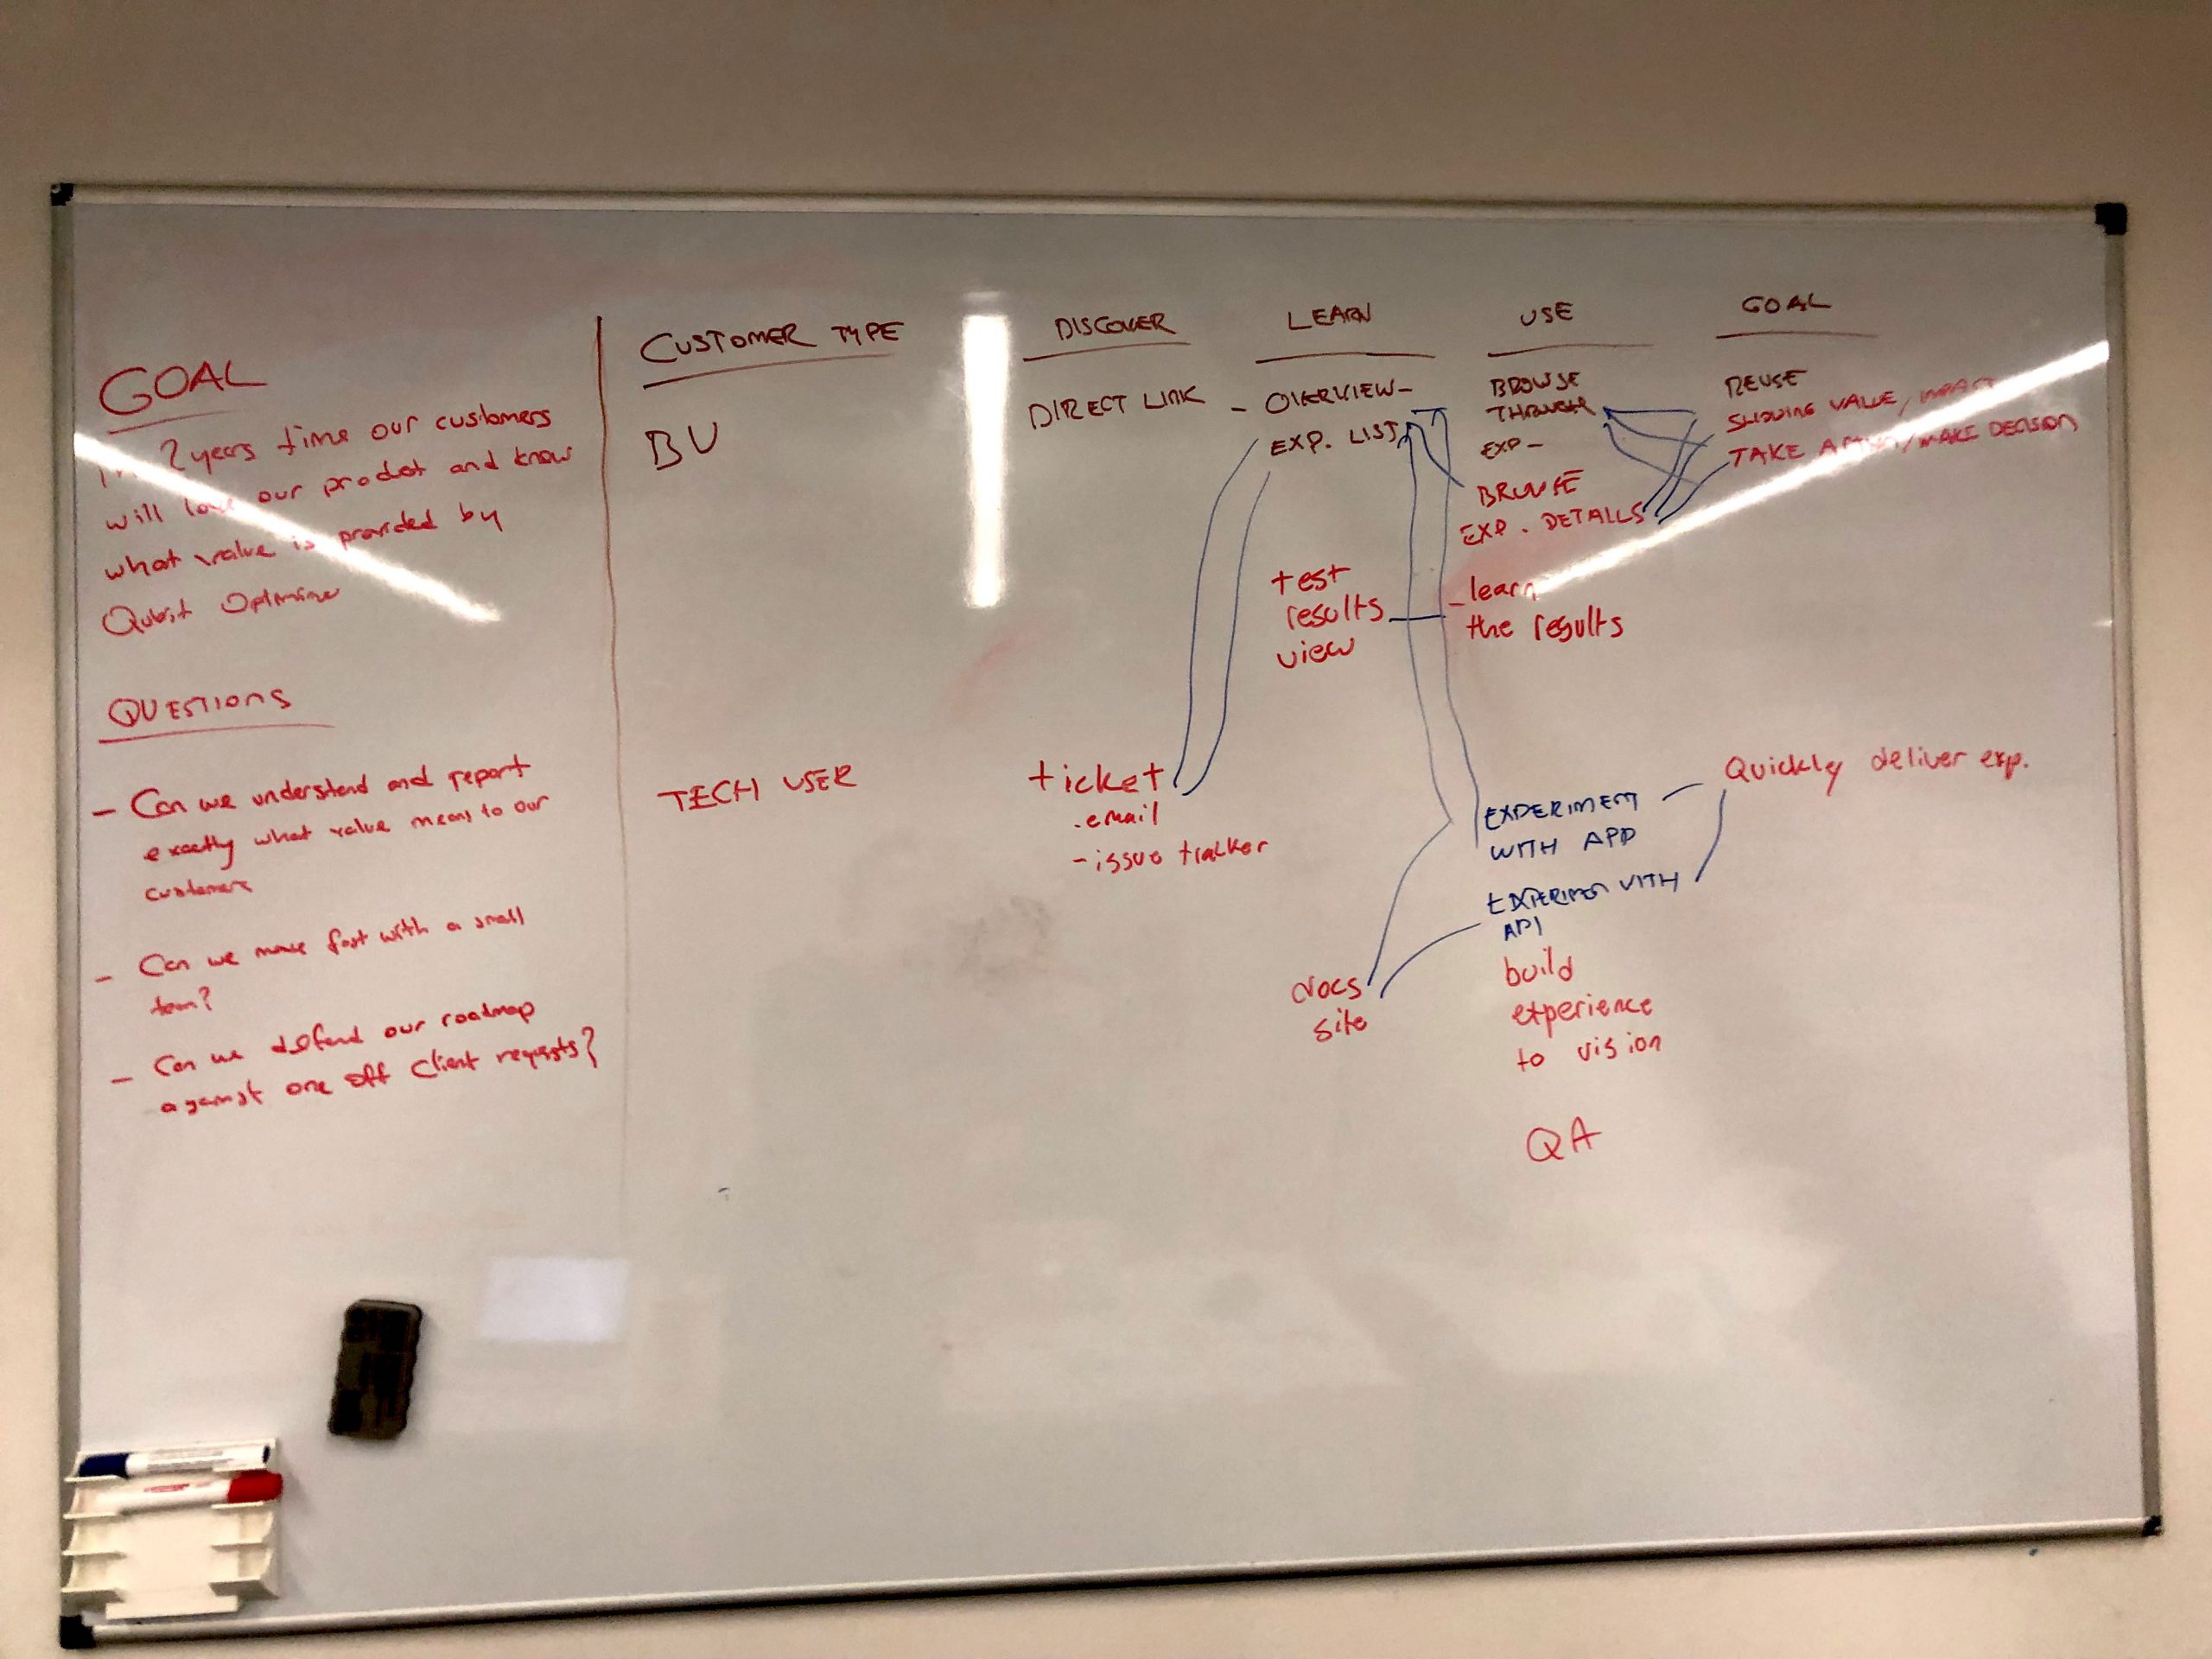 GOAL
In 2 years time our customers
will love our product and know
what value is provided by
Qubit Optimize
QUESTIONS
- Can we understand and report
exactly what value means to our
customers
- Can we move fast with a small
team?
- Can we defend our roadmap
against one off client requests?
CUSTOMER TYPE
BU
TECH USER
DISCOVER
DIRECT LINK
ticket
- email
- issue tracker
LEARN
- OVERVIEW -
EXP. LIST
test
results
view
docs
site
USE
BROWSE
THROUGH
EXP -
BROWSE
EXP. DETAILS
- learn
the results
EXPERIMENT
WITH APP
EXPERIMEN WITH
API
build
experience
to vision
QA
GOAL
REUSE
SHOWING VALUE, IMPACT
TAKE ACTION/MAKE DECISION
Quickly deliver exp.